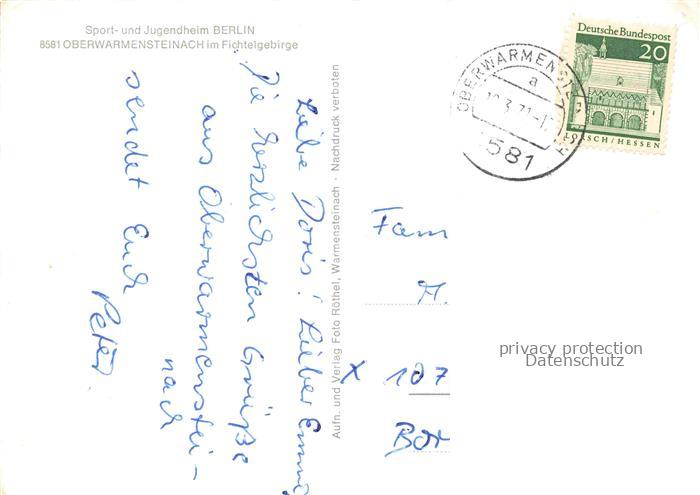 Sport- und Jugendheim BERLIN
8581 OBERWARMENSTEINACH im Fichtelgebirge
Deutsche Bundespost
20
LORSCH/HESSEN
OBERWARMENSTEINACH
a
10.3.71-1
8581
Liebe Doris! Lieber
Die herzlichsten Grüße
aus Oberwarmenstei-
nach
sendet Euch
Peter.
Aufn. und Verlag Foto Röthel, Warmensteinach · Nachdruck verboten
Fam
M.
X 107
Bor
privacy protection
Datenschutz